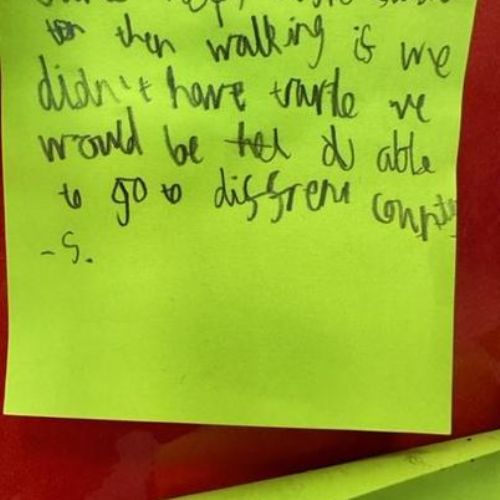 then walking is we
didn't have trarle we
would be able
to go to diffrent
-S.